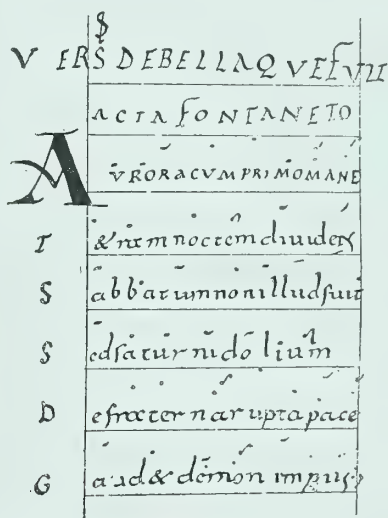 VERS DEBELLAQVEFVIT
ACTA FONTANETO
AVRORACVMPRIMOMANE
T &ram noctem diuidens
S abbatum non illud fuit
S ed saturni dolium
D e fraterna rupta pace
G aud& demon impius